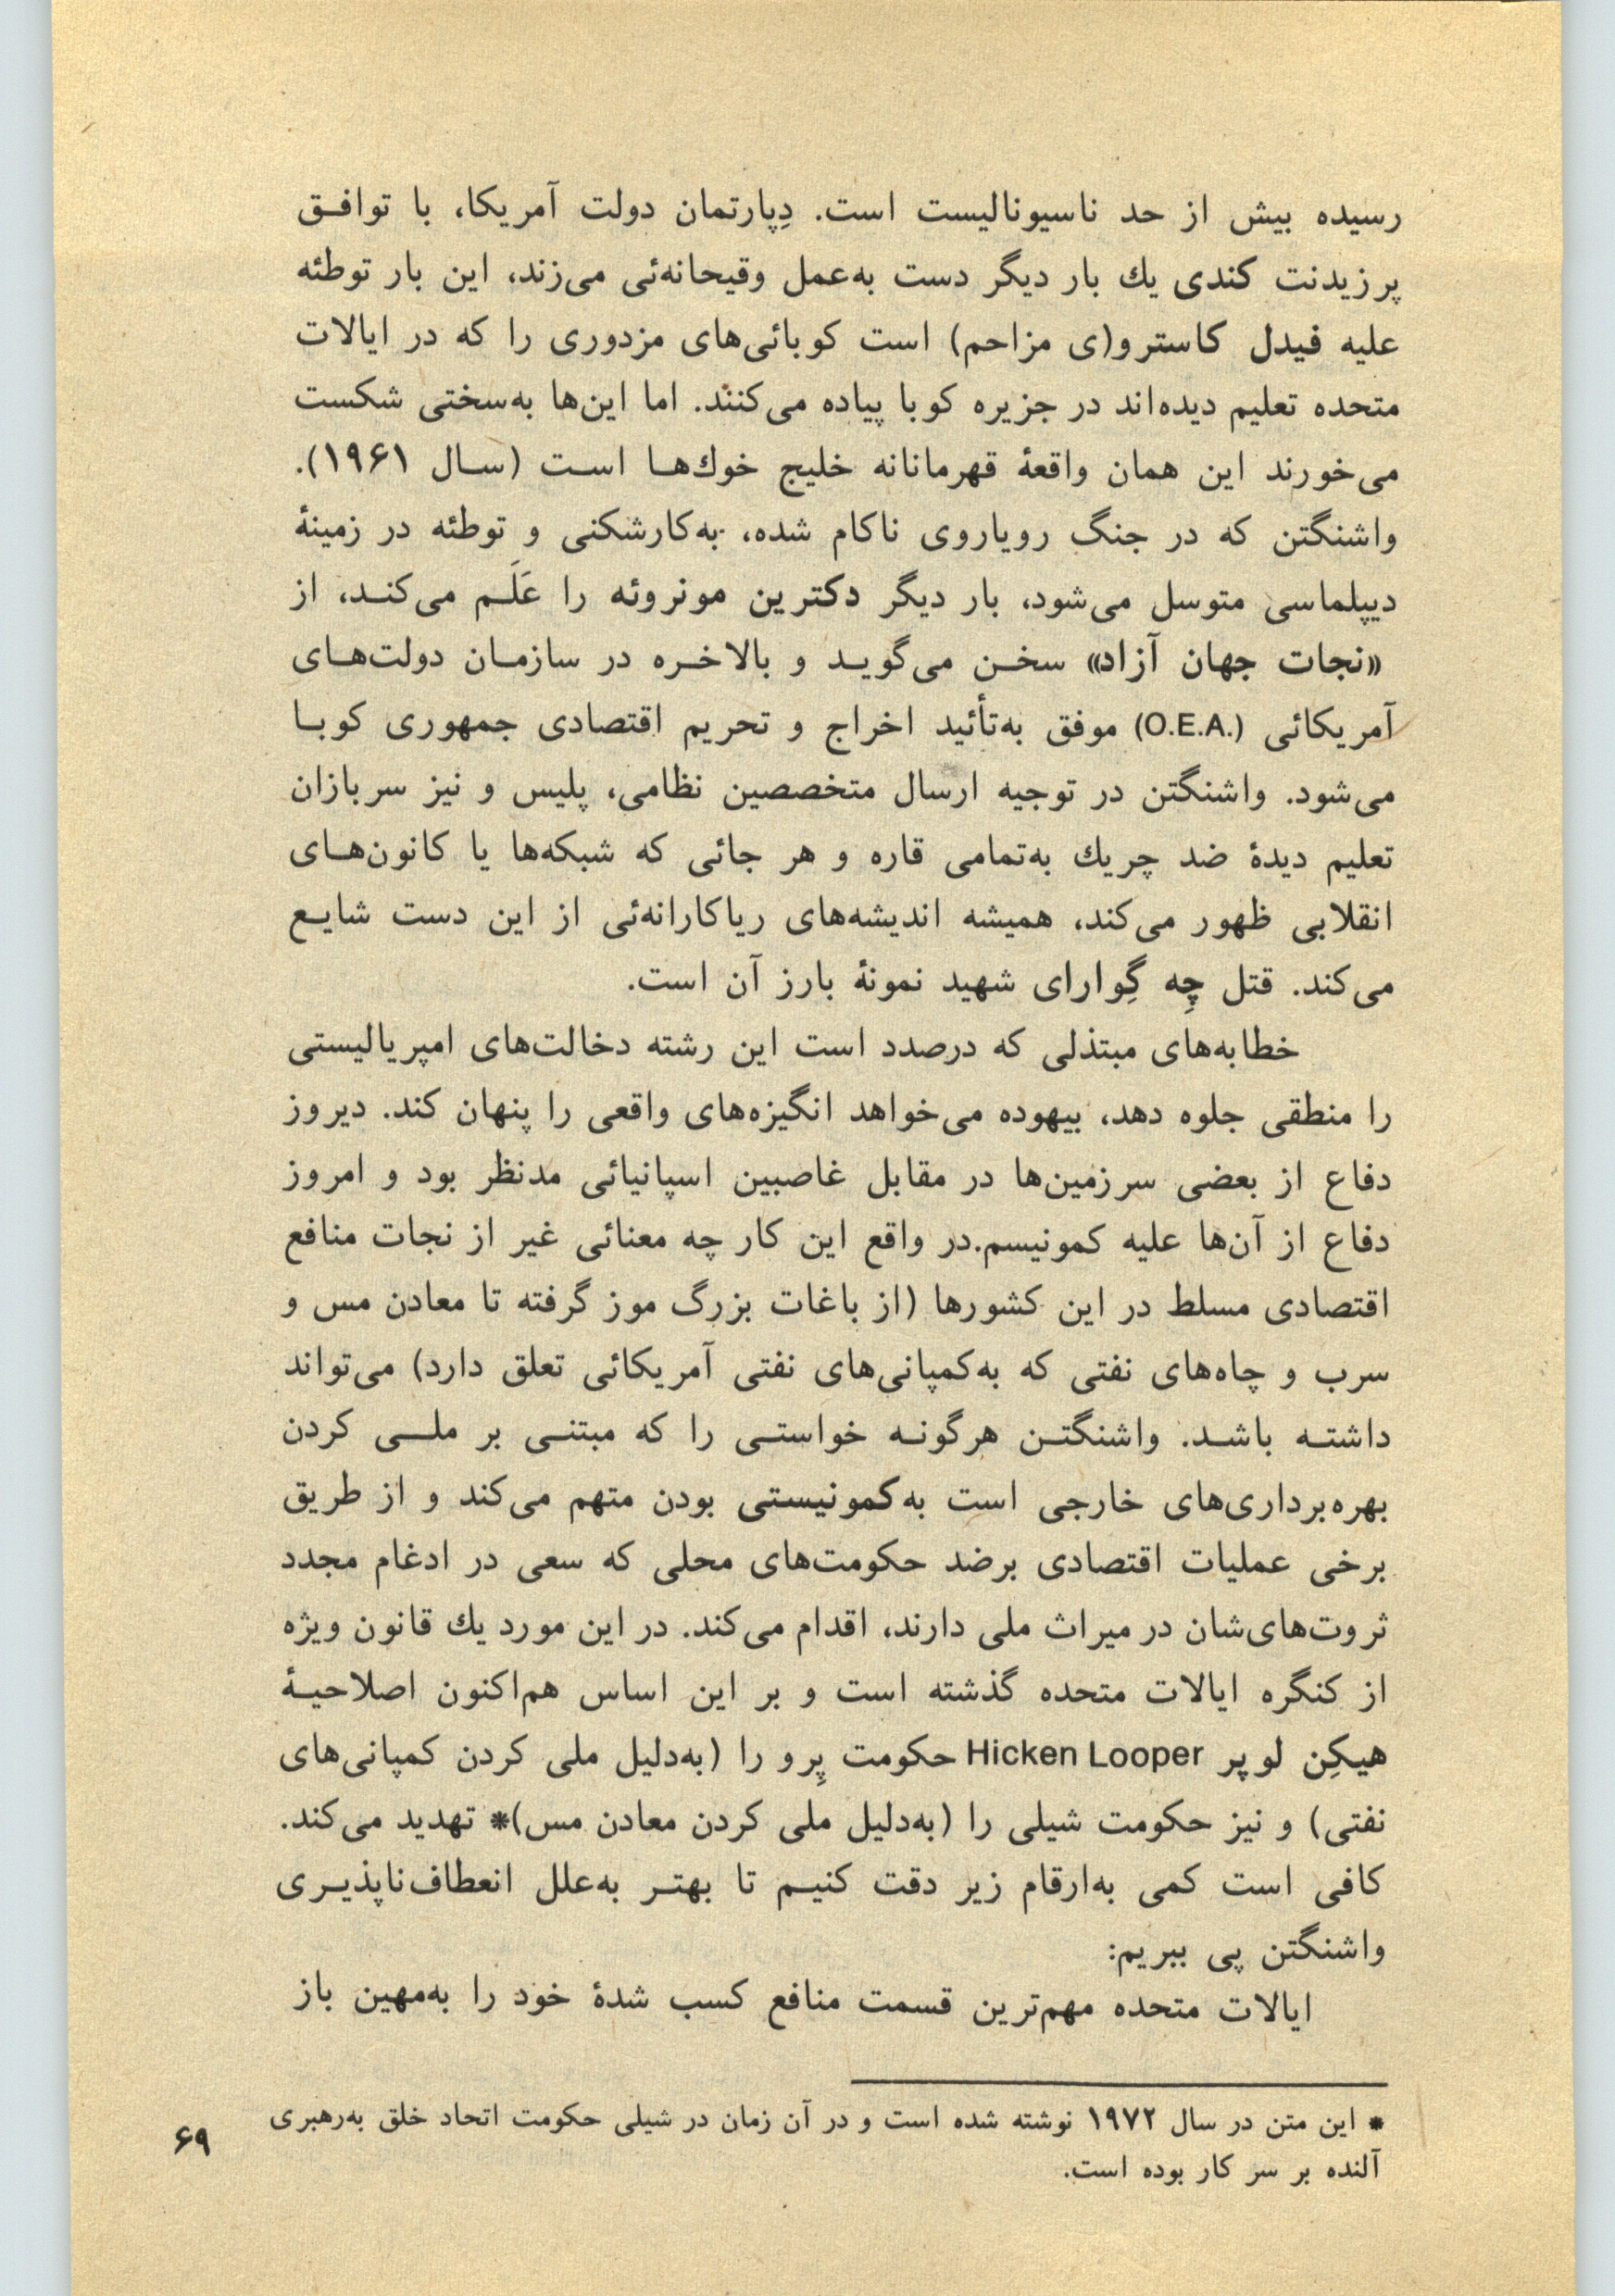 رسیده بیش از حد ناسیونالیست است. دِپارتمان دولت آمریکا، با توافـق
پرزیدنت کندی یك بار دیگر دست به‌عمل وقیحانه‌ئی می‌زند، این بار توطئه
علیه فیدل کاسترو(ی مزاحم) است کوبائی‌های مزدوری را که در ایالات
متحده تعلیم دیده‌اند در جزیره کوبا پیاده می‌کنند. اما این‌ها به‌سختی شکست
می‌خورند این همان واقعهٔ قهرمانانه خلیج خوك‌هـا اسـت (سـال ۱۹۶۱).
واشنگتن که در جنگ رویاروی ناکام شده، به‌کارشکنی و توطئه در زمینهٔ
دیپلماسی متوسل می‌شود، بار دیگر دکترین مونروئه را عَلَـم می‌کنـد، از
«نجات جهان آزاد» سخـن می‌گویـد و بالاخـره در سازمـان دولت‌هـای
آمریکائی (O.E.A.) موفق به‌تأئید اخراج و تحریم اقتصادی جمهوری کوبـا
می‌شود. واشنگتن در توجیه ارسال متخصصین نظامی، پلیس و نیز سربازان
تعلیم دیدهٔ ضد چریك به‌تمامی قاره و هر جائی که شبکه‌ها یا کانون‌هـای
انقلابی ظهور می‌کند، همیشه اندیشه‌های ریاکارانه‌ئی از این دست شایـع
می‌کند. قتل چِه گِوارای شهید نمونهٔ بارز آن است.
خطابه‌های مبتذلی که درصدد است این رشته دخالت‌های امپریالیستی
را منطقی جلوه دهد، بیهوده می‌خواهد انگیزه‌های واقعی را پنهان کند. دیروز
دفاع از بعضی سرزمین‌ها در مقابل غاصبین اسپانیائی مدنظر بود و امروز
دفاع از آن‌ها علیه کمونیسم.در واقع این کار چه معنائی غیر از نجات منافع
اقتصادی مسلط در این کشورها (از باغات بزرگ موز گرفته تا معادن مس و
سرب و چاه‌های نفتی که به‌کمپانی‌های نفتی آمریکائی تعلق دارد) می‌تواند
داشتـه باشـد. واشنگتـن هرگونـه خواستـی را که مبتنـی بر ملـی کردن
بهره‌برداری‌های خارجی است به‌کمونیستی بودن متهم می‌کند و از طریق
برخی عملیات اقتصادی برضد حکومت‌های محلی که سعی در ادغام مجدد
ثروت‌های‌شان در میراث ملی دارند، اقدام می‌کند. در این مورد یك قانون ویژه
از کنگره ایالات متحده گذشته است و بر این اساس هم‌اکنون اصلاحیـهٔ
هیکِن لوپر Hicken Looper حکومت پِرو را (به‌دلیل ملی کردن کمپانی‌های
نفتی) و نیز حکومت شیلی را (به‌دلیل ملی کردن معادن مس)* تهدید می‌کند.
کافی است کمی به‌ارقام زیر دقت کنیـم تا بهتـر به‌علل انعطاف‌ناپذیـری
واشنگتن پی ببریم:
ایالات متحده مهم‌ترین قسمت منافع کسب شدهٔ خود را به‌مهین باز
* این متن در سال ۱۹۷۲ نوشته شده است و در آن زمان در شیلی حکومت اتحاد خلق به‌رهبری
آلنده بر سر کار بوده است.
۶۹